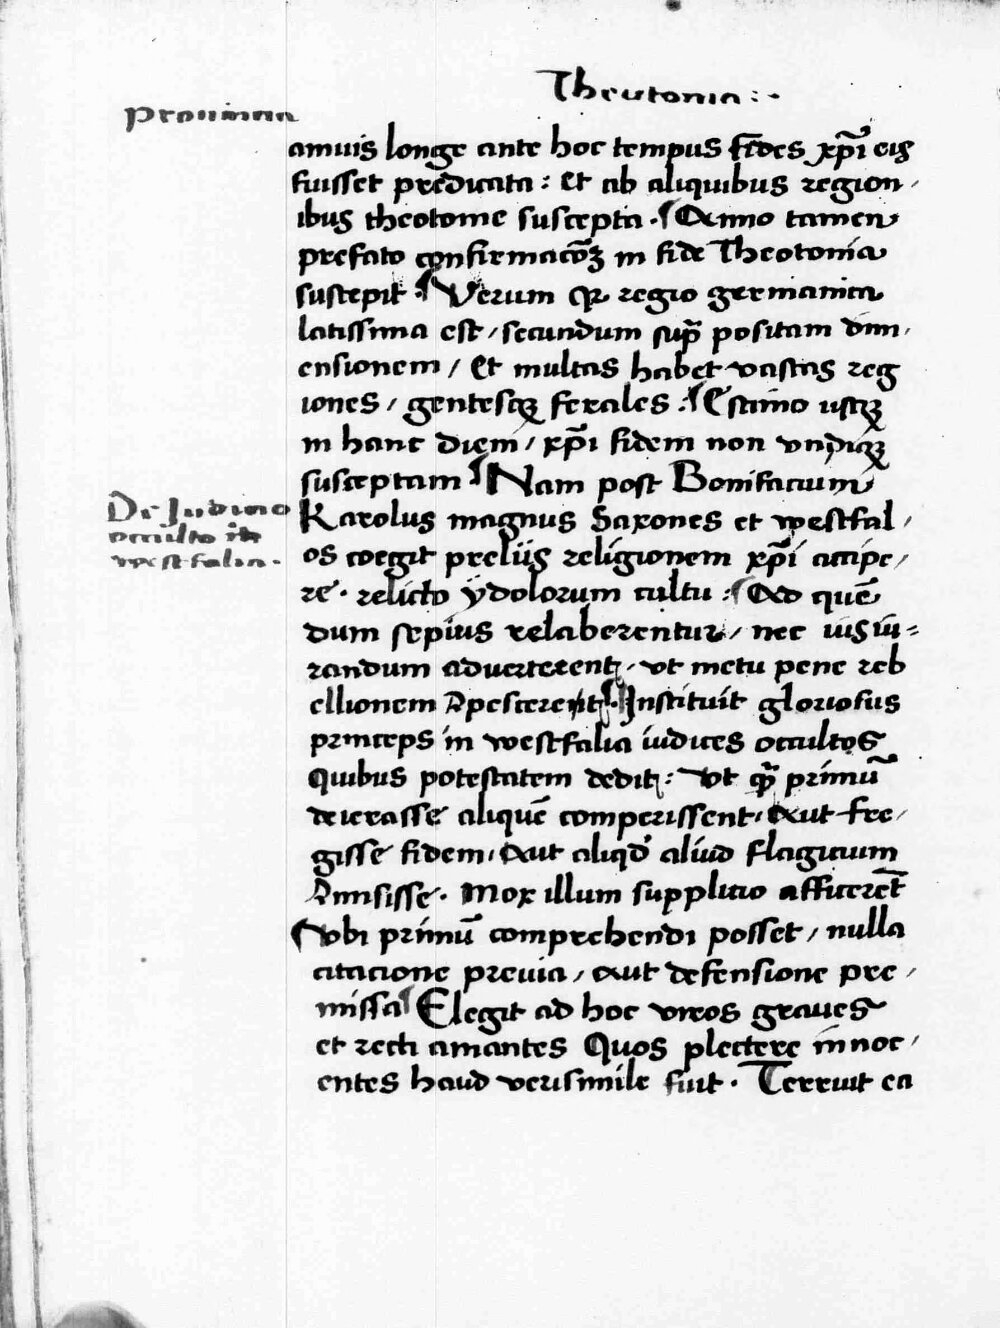 Theutonia :·
Prouincia
amuis longe ante hoc tempus fides xp̄i eis
fuisset predicata : et ab aliquibus region /
ibus theotonie suscepta · Anno tamen
prefato confirmacōꝫ in fide Theotonia
suscepit · Verum qꝛ regio germanica
latissima est / secundum sup̄ positam dim /
ensionem / Et multas habet vastas reg
iones / gentesqꝫ ferales : Estimo usqꝫ
in hanc diem / xp̄i fidem non vndiqꝫ
susceptam Nam post Bonifacium
De Iudicio
occulto in
westfalia ·
Karolus magnus Saxones et westfal /
os coegit preliis religionem xp̄i accipe /
re · relicto ydolorum cultu : Ad quē
dum sepius relaberentur / nec iusiu=
randum aduerterent / vt metu pene reb
ellionem 9pesceret Instituit gloriosus
princeps in westfalia iudices occultos
Quibus potestatem dedit : vt qꝫ primū
deierasse aliquē comperissent / Aut fre /
gisse fidem / Aut aliqd' aliud flagicium
9misisse · Mox illum supplicio afficerēt
Vbi primū comprehendi posset / nulla
citacione preuia / aut defensione pre /
missa Elegit ad hoc viros graues
et recti amantes Quos plectere innoc /
entes haud verisimile fuit · Terruit ea